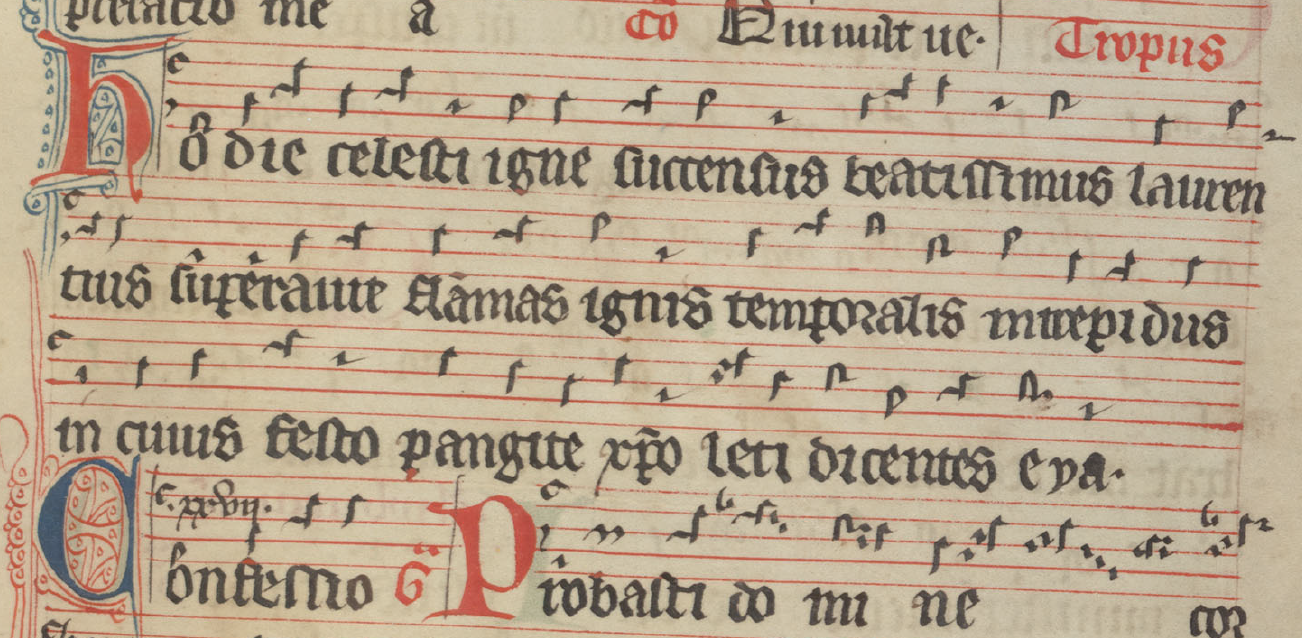 me a Co Diuuīat ue. Tropus
Hodie celesti igne succensus beatissimus lauren
tius suꝑerauit flāmas ignis temporalis intrepidus
in cuius festo pangite xp̄o leti dicentes eya.
Confessio G Probasti do mi ne cor